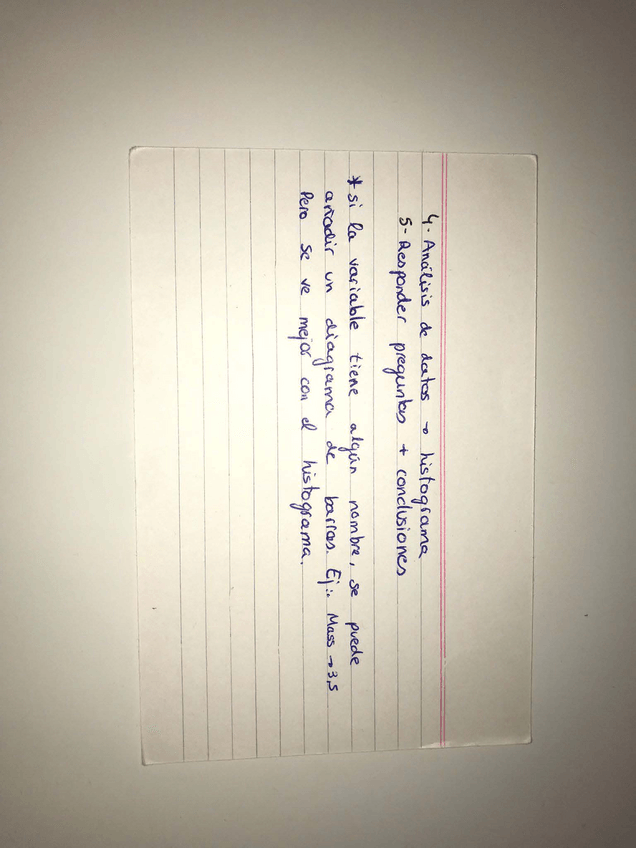 4- Análisis de datos → histograma
5- Responder preguntas + conclusiones
* si la variable tiene algún nombre, se puede
añadir un diagrama de barras. Ej:. Mass → 3,5
Pero se ve mejor con el histograma.